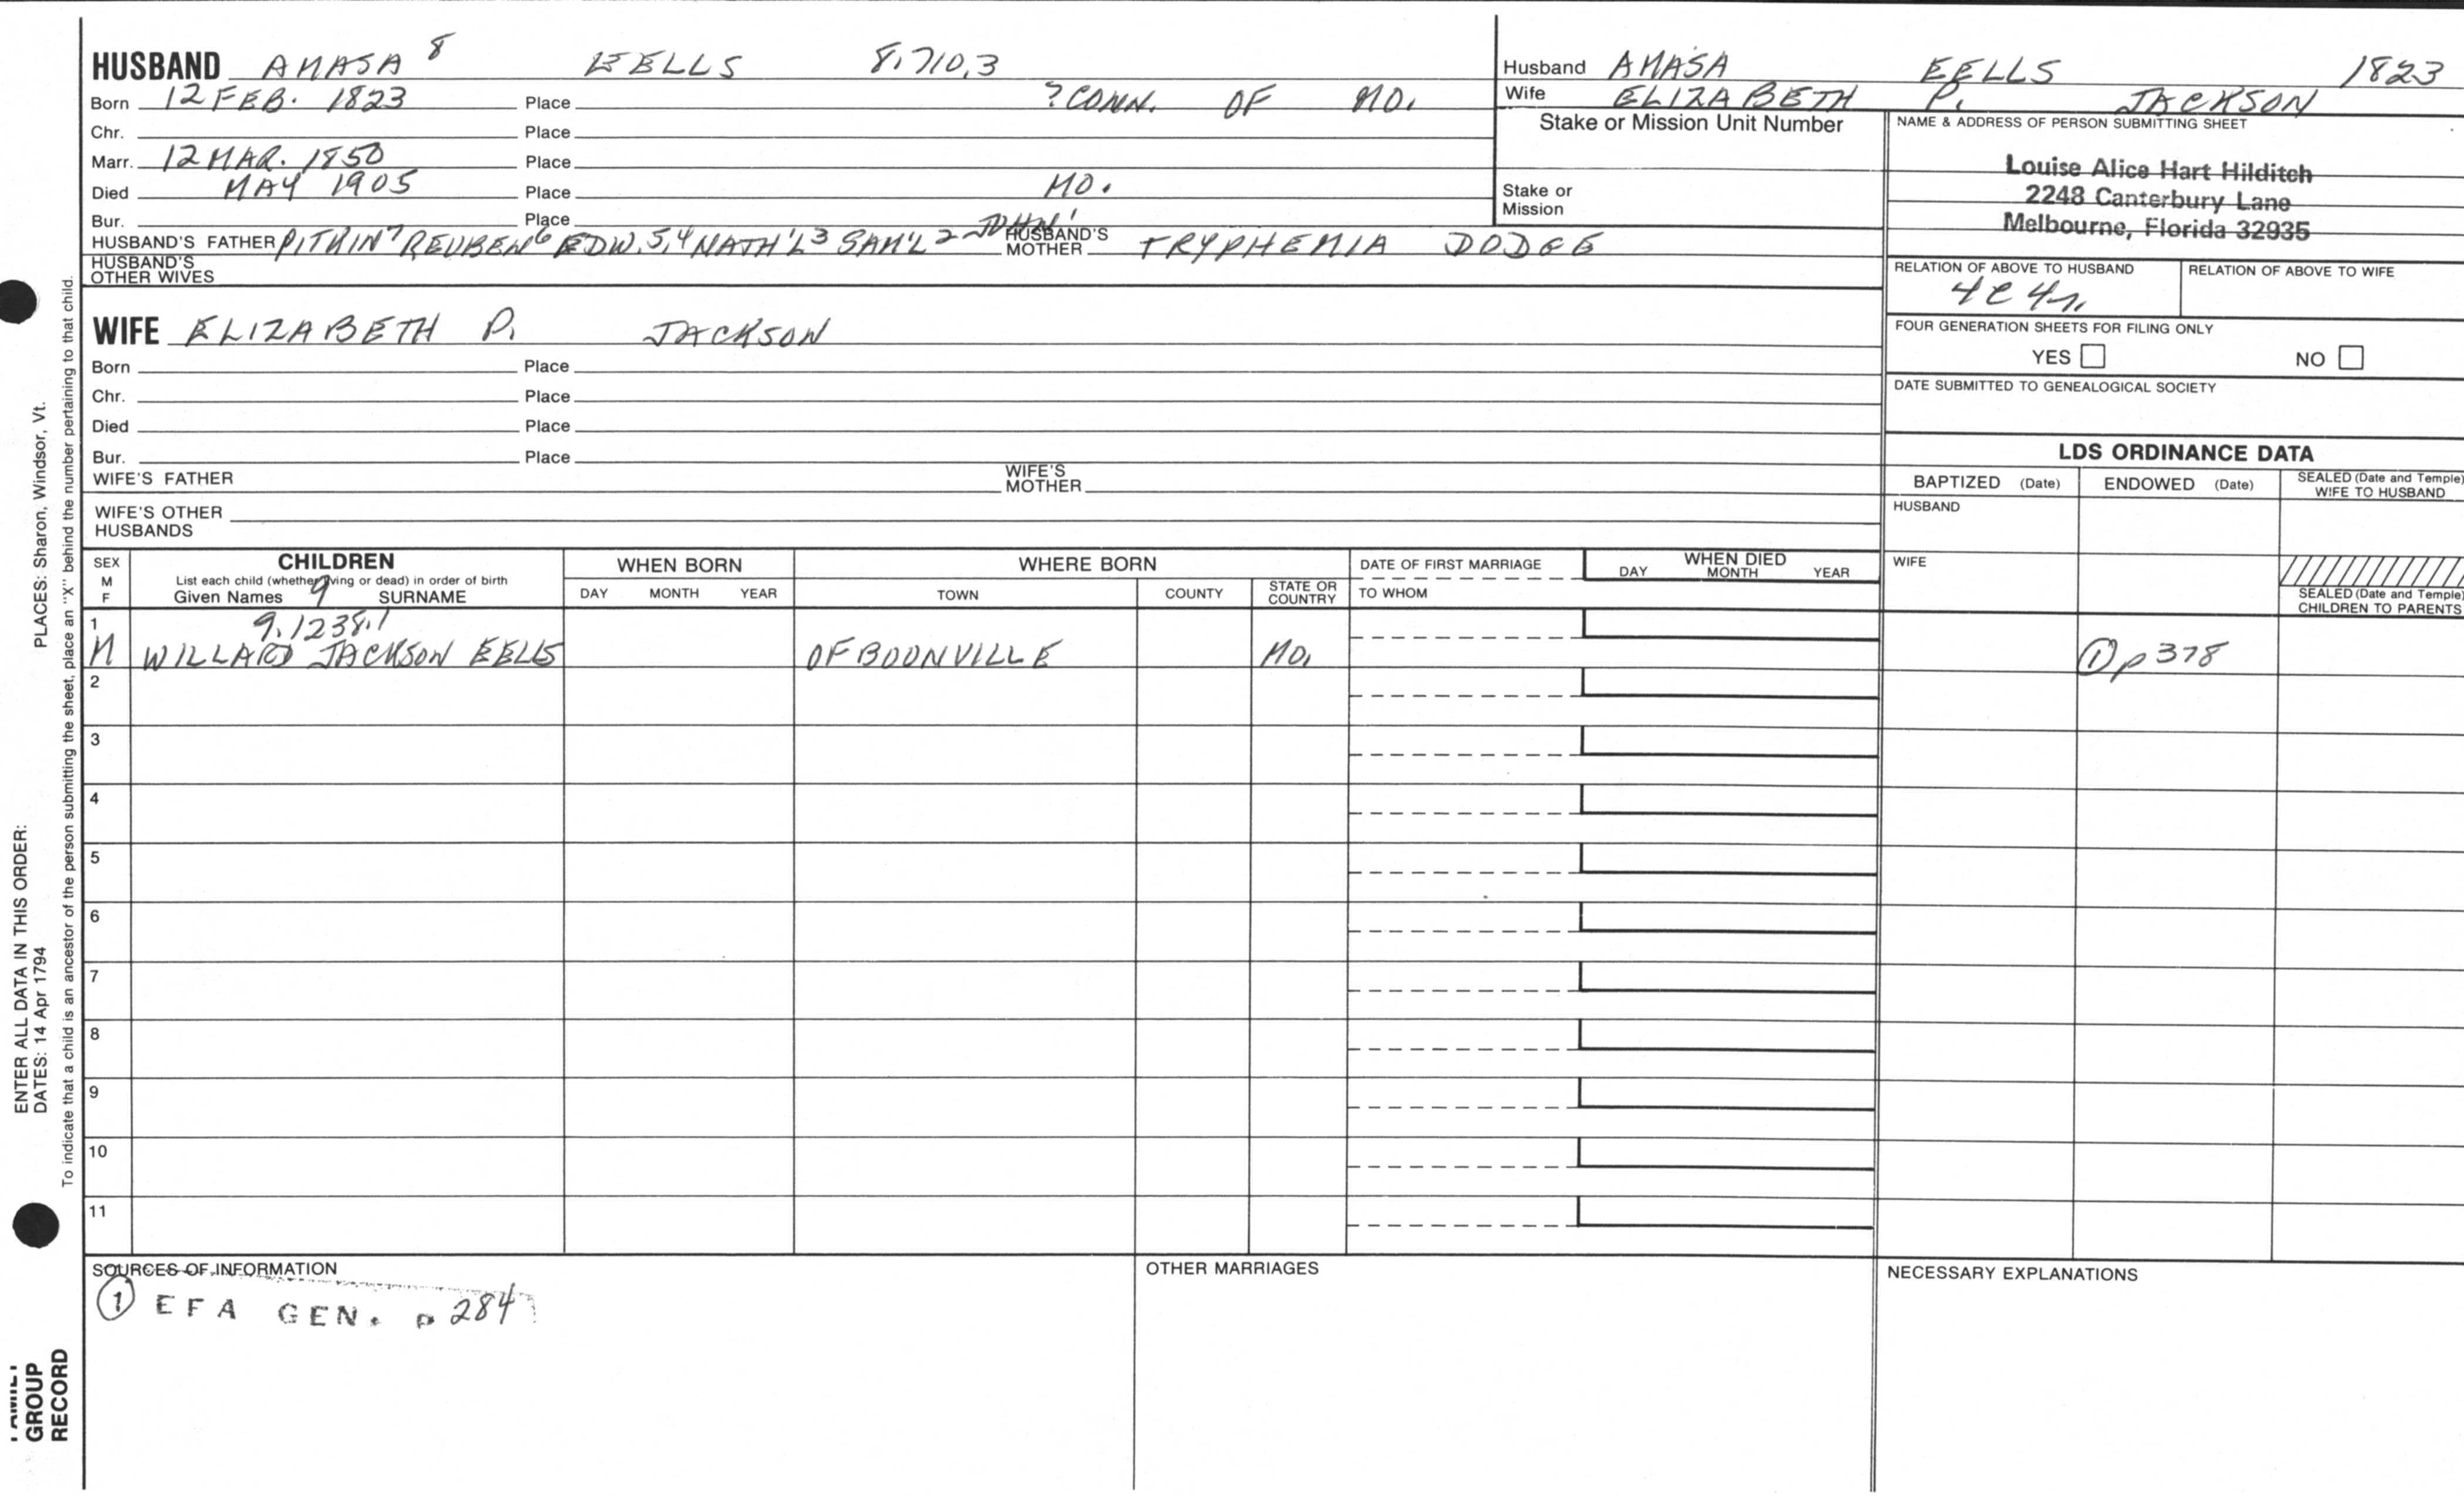 HUSBAND AMASA 8 EELLS 8.710.3
Born 12 FEB. 1823 Place ? CONN. OF MO.
Chr. Place
Marr. 12 MAR. 1850 Place
Died MAY 1905 Place MO.
Bur. Place
HUSBAND'S FATHER PITKIN 7 REUBEN 6 EDW. 5,4 NATH'L 3 SAM'L 2 JOHN 1 HUSBAND'S MOTHER TRYPHEMIA DODGE
HUSBAND'S OTHER WIVES
WIFE ELIZABETH P. JACKSON
Born Place
Chr. Place
Died Place
Bur. Place
WIFE'S FATHER WIFE'S MOTHER
WIFE'S OTHER HUSBANDS
Husband AMASA EELLS 1823
Wife ELIZABETH P. JACKSON
Stake or Mission Unit Number
Stake or Mission
NAME & ADDRESS OF PERSON SUBMITTING SHEET
Louise Alice Hart Hilditch
2248 Canterbury Lane
Melbourne, Florida 32935
RELATION OF ABOVE TO HUSBAND RELATION OF ABOVE TO WIFE
4C 4r.
FOUR GENERATION SHEETS FOR FILING ONLY
YES NO
DATE SUBMITTED TO GENEALOGICAL SOCIETY
LDS ORDINANCE DATA
BAPTIZED (Date) ENDOWED (Date) SEALED (Date and Temple) WIFE TO HUSBAND
HUSBAND
WIFE
SEALED (Date and Temple) CHILDREN TO PARENTS
SEX M F
CHILDREN
List each child (whether living or dead) in order of birth
Given Names 9 SURNAME
WHEN BORN
DAY MONTH YEAR
WHERE BORN
TOWN COUNTY STATE OR COUNTRY
DATE OF FIRST MARRIAGE
TO WHOM
WHEN DIED
DAY MONTH YEAR
1 9.1238.1
M WILLARD JACKSON EELLS OF BOONVILLE MO. ① p 378
2
3
4
5
6
7
8
9
10
11
SOURCES OF INFORMATION
① EFA GEN. p 284
OTHER MARRIAGES
NECESSARY EXPLANATIONS
PLACES: Sharon, Windsor, Vt.
ENTER ALL DATA IN THIS ORDER:
DATES: 14 Apr 1794
To indicate that a child is an ancestor of the person submitting the sheet, place an "X" behind the number pertaining to that child.
FAMILY
GROUP
RECORD